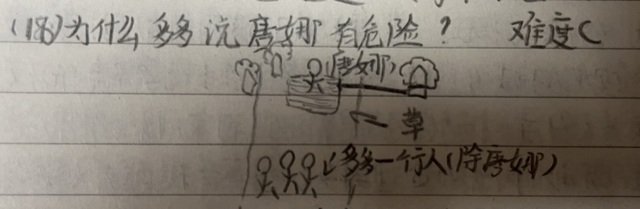 (18)为什么多多说唐娜有危险? 难度C
(唐娜)
草
多多一行人(除唐娜)